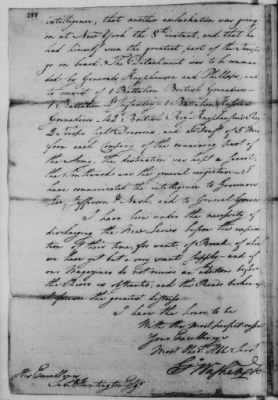 288
intelligence, that another embarkation was going
on at New York the 8th instant, and that he
had himself seen the greatest part of the Troops
go on board. The Detachment was to be comman-
ded by Generals Knyphausen and Phillips, and
to consist of 1 Battalion British Grenadiers
1 Battalion Lt Infantry 1 Battalion Hessian
Grenadiers 42d British Regt Knyphausens Regt
2 Troops Light Dragoons, and a draft of 5 Men
from each Company of the remaining part of
the Army. The destination was kept a secret.
the was the general conjecture. I
have communicated the intelligence to Governors
Lee, Jefferson & Nash, and to General Greene
I have been under the necessity of
discharging the New Levies before the expiration
of their time, for want of Bread, of which
we have yet but a very scant Supply and if
our Magazines do not receive an addition before
the River is obstructed, and the Roads broken up
I foresee the greatest distress.
I have the honor to be
With the most perfect respect
Your Excellency's
Most Obedt Hble Servt
Go Washington
His Excellency
Saml Huntington Esqr